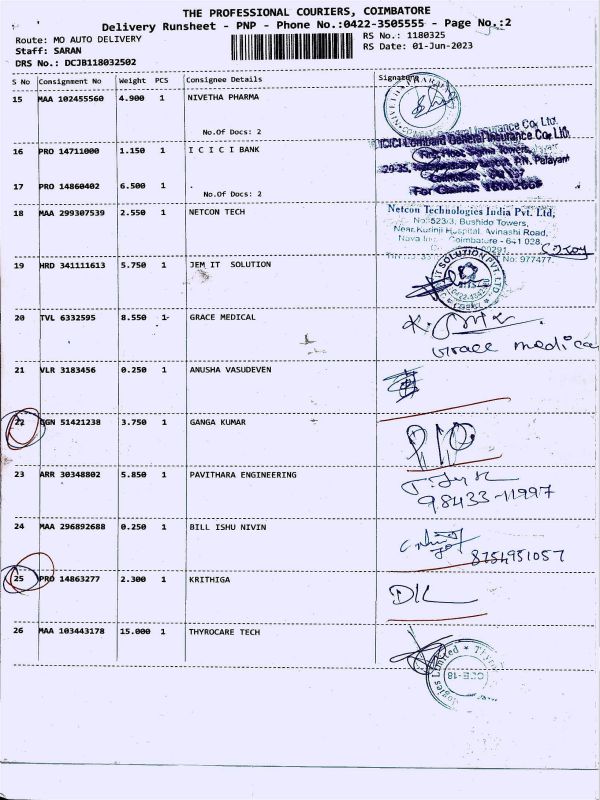 THE PROFESSIONAL COURIERS, COIMBATORE
Delivery Runsheet - PNP - Phone No.:0422-3505555 - Page No.:2
Route: MO AUTO DELIVERY
RS No.: 1180325
Staff: SARAN
RS Date: 01-Jun-2023
DRS No.: DCJB118032502
S No Consignment No Weight PCS Consignee Details Signature
15 MAA 102455560 4.900 1 NIVETHA PHARMA
No.Of Docs: 2
16 PRO 14711000 1.150 1 I C I C I BANK
ICICI Lombard General Insurance Co Ltd.
17 PRO 14860402 6.500 1
No.Of Docs: 2
18 MAA 299307539 2.550 1 NETCON TECH
Netcon Technologies India Pvt. Ltd,
No:523/3, Bushido Towers,
Near.Kurinji Hospital, Avinashi Road,
Coimbature - 641 028,
No: 977477.
19 HRD 341111613 5.750 1 JEM IT SOLUTION
IT SOLUTION PVT. LTD
20 TVL 6332595 8.550 1 GRACE MEDICAL
Grace medica
21 VLR 3183456 0.250 1 ANUSHA VASUDEVEN
22 GGN 51421238 3.750 1 GANGA KUMAR
23 ARR 30348802 5.850 1 PAVITHARA ENGINEERING
98433-11997
24 MAA 296892688 0.250 1 BILL ISHU NIVIN
8754951057
25 PRO 14863277 2.300 1 KRITHIGA
26 MAA 103443178 15.000 1 THYROCARE TECH